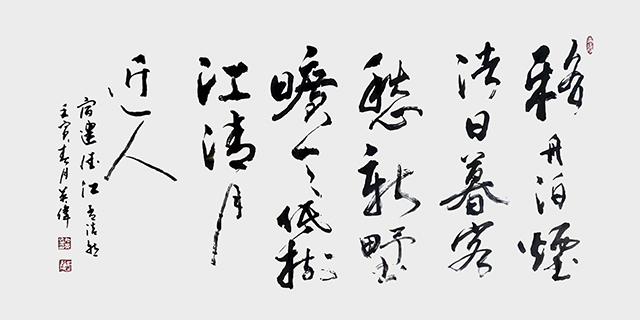 移舟泊煙
渚日暮客
愁新野
曠天低樹
江清月
近人
宿建德江 孟浩然
壬寅春月英偉